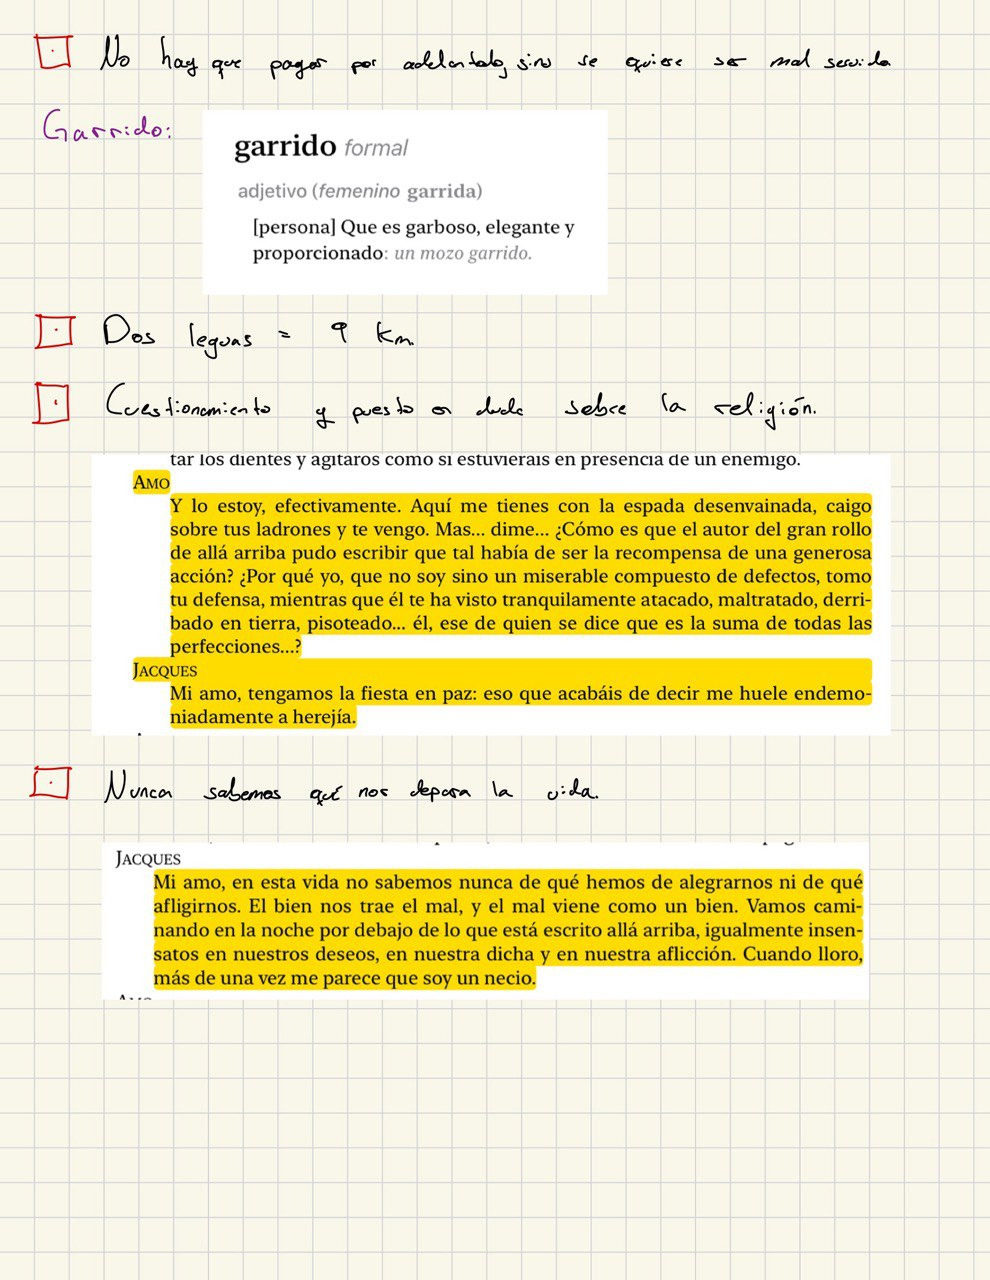 No hay que pagar por adelantado, sino se quiere ser mal servido
Garrido:
garrido formal
adjetivo (femenino garrida)
[persona] Que es garboso, elegante y
proporcionado: un mozo garrido.
Dos leguas = 9 km.
Cuestionamiento y puesto en duda sobre la religión.
tar los dientes y agitaros como si estuvierais en presencia de un enemigo.
AMO
Y lo estoy, efectivamente. Aquí me tienes con la espada desenvainada, caigo
sobre tus ladrones y te vengo. Mas... dime... ¿Cómo es que el autor del gran rollo
de allá arriba pudo escribir que tal había de ser la recompensa de una generosa
acción? ¿Por qué yo, que no soy sino un miserable compuesto de defectos, tomo
tu defensa, mientras que él te ha visto tranquilamente atacado, maltratado, derri-
bado en tierra, pisoteado... él, ese de quien se dice que es la suma de todas las
perfecciones...?
JACQUES
Mi amo, tengamos la fiesta en paz: eso que acabáis de decir me huele endemo-
niadamente a herejía.
Nunca sabemos qué nos depara la vida.
JACQUES
Mi amo, en esta vida no sabemos nunca de qué hemos de alegrarnos ni de qué
afligirnos. El bien nos trae el mal, y el mal viene como un bien. Vamos cami-
nando en la noche por debajo de lo que está escrito allá arriba, igualmente insen-
satos en nuestros deseos, en nuestra dicha y en nuestra aflicción. Cuando lloro,
más de una vez me parece que soy un necio.